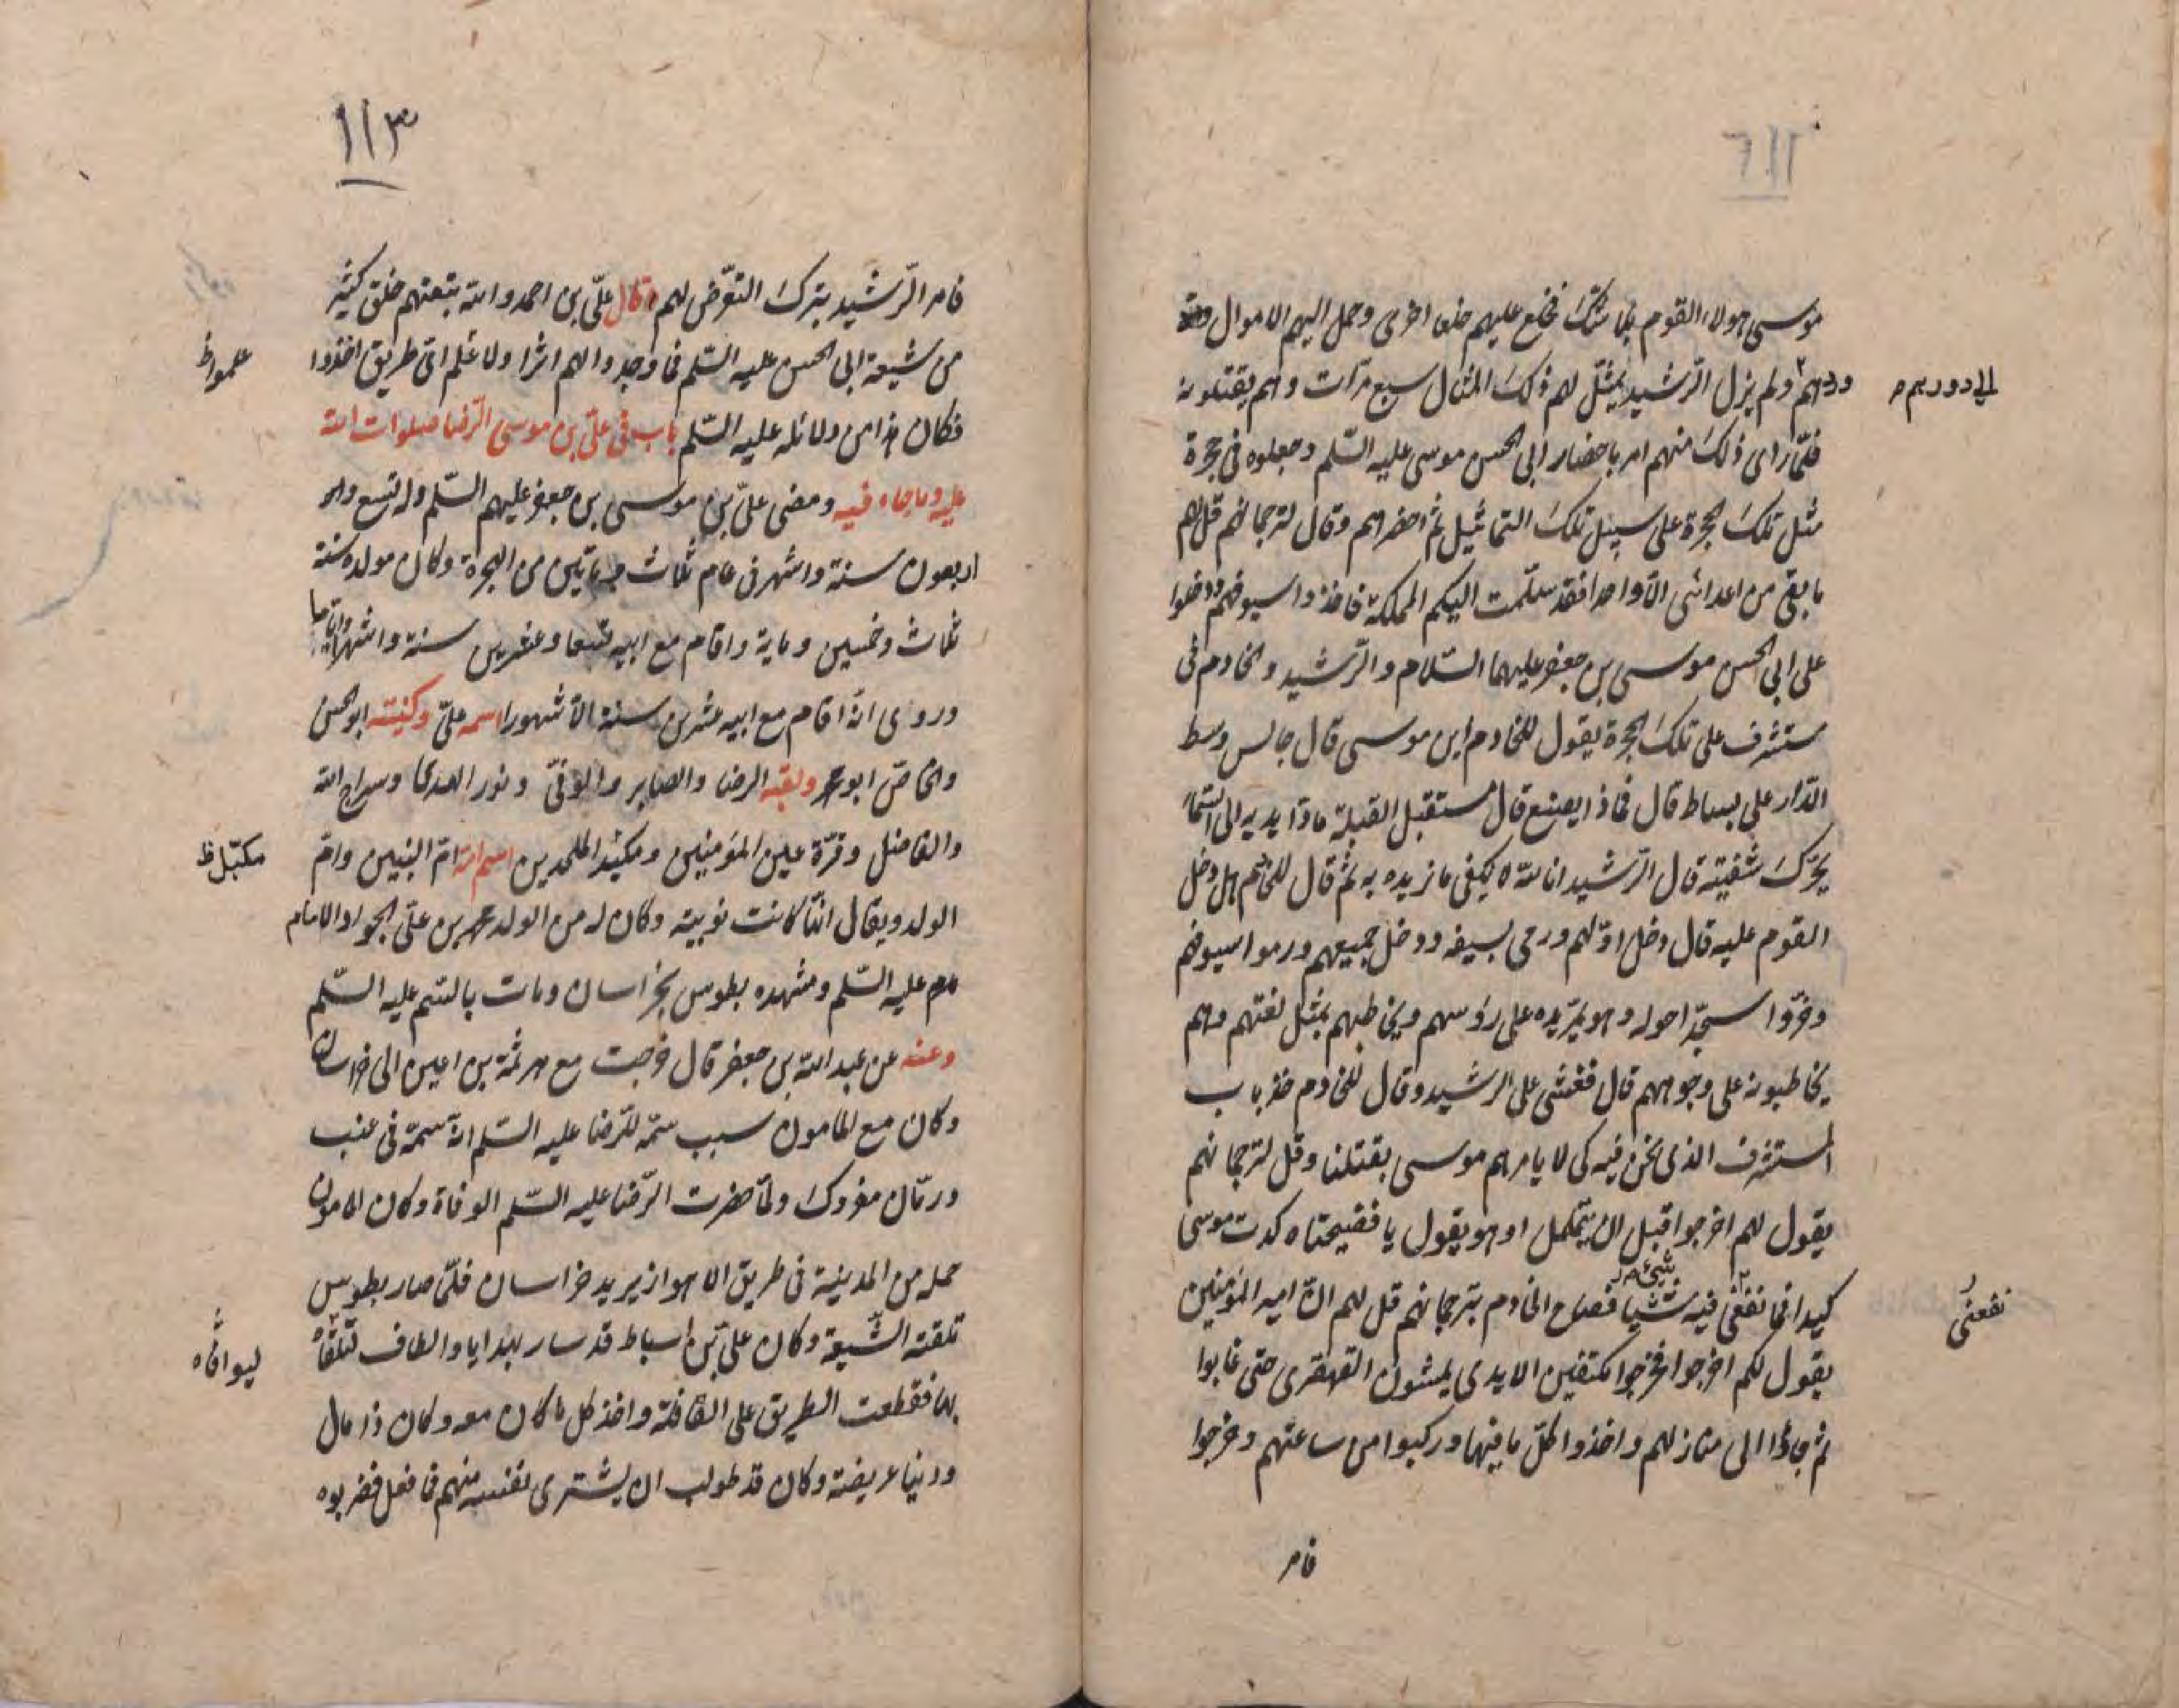 موسى هولاء القوم بما شئت فخلع عليهم خلعا اخرى وحمل اليهم الاموال
ودهم ولم يزل الرشيد يمثّل لهم ذلك المثال سبع مرّات وهم يقتلونه
الى دورهم م
فلمّا رأى ذلك منهم امر باحضار ابى الحسن موسى عليه السّلم وجعلوه فى حجرة
مثل تلك الحجرة على سبيل تلك التماثيل ثم احضرهم وقال لترجمانهم قل لهم
ما بقى من اعدائى الّا واحدا فقد سلّمت اليكم المملكة فاخذوا سيوفهم ودخلوا
على ابى الحسن موسى بن جعفر عليهما السّلام والرّشيد والخادم فى
مستشرف على تلك الحجرة يقول للخادم اين موسى قال جالس وسط
الدّار على بساط قال فماذا يصنع قال مستقبل القبلة مادّا يديه الى السّماء
يحرّك شفتيه قال الرّشيد انا لله يكفى ما نريده به ثم قال للخادم هل دخل
القوم عليه قال دخل اوّلهم ورمى بسيفه ودخل جميعهم ورموا سيوفهم
وخرّوا سجّدا حوله وهو يمرّ يده على رؤسهم ويخاطبهم بمثل لغتهم وهم
يخاطبونه على وجوههم قال فغشى على الرشيد وقال للخادم خذ باب
المستشرف الذى نحن فيه كى لا يامرهم موسى بقتلنا وقل لترجمانهم
يقول لهم اخرجوا قبل ان يتمكل وهو يقول يا فضيحتاه كدت موسى
كيدا فما نفعنى فيه شيئا فصاح الخادم بترجمانهم قل لهم انّ امير المؤمنين
شىء
نفعنى
يقول لكم اخرجوا فخرجوا مكتفين الايدى يمشون القهقرى حتى غابوا
ثم جاؤا الى منازلهم واخذوا كلّ ما فيها وركبوا من ساعتهم وخرجوا
فامر
١١٣
فامر الرّشيد بترك التعرّض لهم وقال علىّ بن احمد والله تبعتهم خلق كثير
من شيعة ابى الحسن عليه السّلم فما وجدوا لهم اثرا ولا علم اىّ طريق اخذوا
علموا ظ
فكان هذا من دلائله عليه السّلم باب فى علىّ بن موسى الرّضا صلوات الله
عليه وما جاء فيه ومضى علىّ بن موسى بن جعفر عليهم السّلم وله تسع و
اربعون سنة واشهر فى عام ثلاث ومأتين من الهجرة وكان مولده سنة
ثلاث وخمسين وماية واقام مع ابيه تسعا وعشرين سنة واشهرا
وروى انّه اقام مع ابيه عشرين سنة الّا شهورا اسمه علىّ وكنيته ابو الحسن
والخاصّ ابو محمد ولقبه الرضا والصابر والوفىّ ونور الهدى وسراج الله
والفاضل وقرّة عين المؤمنين ومكيد الملحدين اسم امّه امّ البنين وامّ
مكبّل ظ
الولد ويقال انّها كانت نوبية وكان له من الولد محمد بن علىّ الجواد الامام
م م عليه السّلم ومشهده بطوس بخراسان ومات بالسّم عليه السّلم
وعنه عن عبد الله بن جعفر قال خرجت مع هرثمة بن اعين الى خراسان
وكان مع المامون سبب سمّه للرّضا عليه السّلم انّه سمّه فى عنب
ورمّان مفروك ولمّا حضرت الرّضا عليه السّلم الوفاة وكان المامون
حمله من المدينة فى طريق الاهواز يريد خراسان فلمّا صار بطوس
تلقته الشّيعة وكان علىّ بن اسباط قد سار بهدايا والطاف لتلقاه
ليوافاه
بها فقطعت الطريق على القافلة واخذ كل ما كان معه وكان ذا مال
ودنيا عريضة وكان قد طولب ان يشترى نفسه منهم فما فعل فضربوه